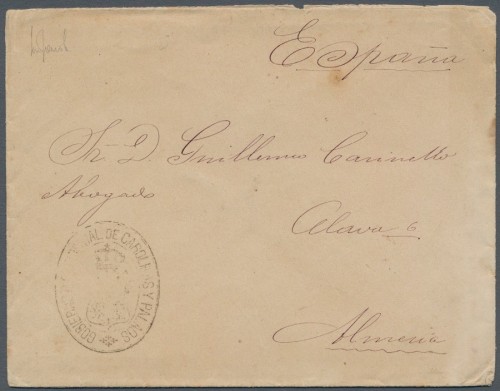 España
Sr. D. Guillermo Carinetto
Abogado
Alava 6
Almeria
GOBIERNO AL DE CAROL S Y PALAOS